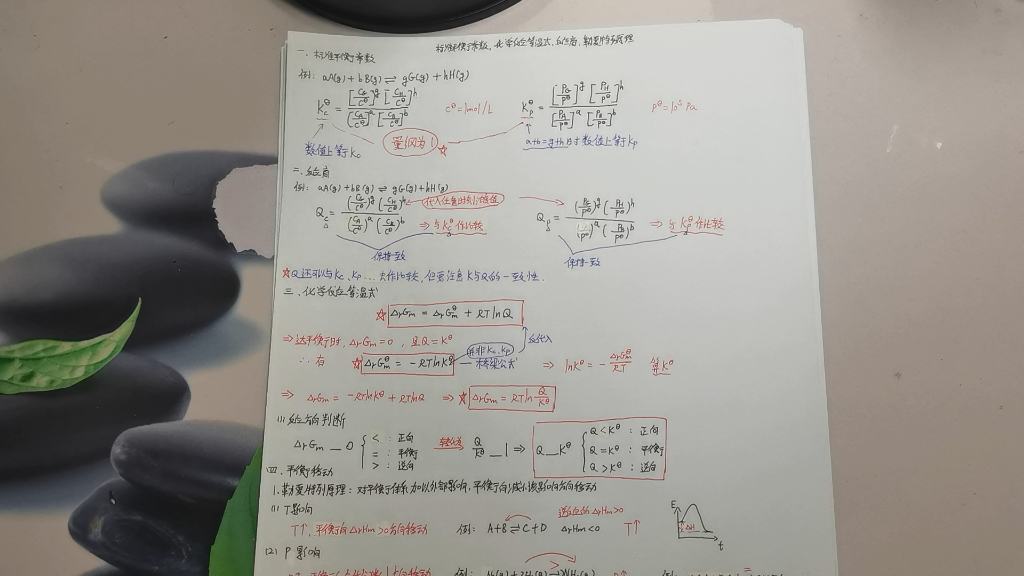 标准平衡常数、化学反应等温式、反应商、勒夏特列原理
一、标准平衡常数
例: aA(g) + bB(g) ⇌ gG(g) + hH(g)
K_c^θ = [C_G/C^θ]^g [C_H/C^θ]^h / [C_A/C^θ]^a [C_B/C^θ]^b  C^θ = 1mol/L  K_p^θ = [P_G/P^θ]^g [P_H/P^θ]^h / [P_A/P^θ]^a [P_B/P^θ]^b  P^θ = 10^5 Pa
数值上等于Kc  量纲为1 ☆  a+b=g+h时数值上等于Kp
二、反应商
例: aA(g) + bB(g) ⇌ gG(g) + hH(g)
Q_c = (C_G/C^θ)^g (C_H/C^θ)^h / (C_A/C^θ)^a (C_B/C^θ)^b  代入任意时刻浓度值  ⇒ 与K_c^θ作比较  Q_p = (P_G/P^θ)^g (P_H/P^θ)^h / (P^θ)^a (P_B/P^θ)^b  ⇒ 与K_p^θ作比较
保持一致  保持一致
☆Q还可以与Kc、Kp…去作比较, 但要注意K与Q的一致性.
三、化学反应等温式
☆ ΔrGm = ΔrGm^θ + RTlnQ
⇒达平衡时, ΔrGm = 0 , 且Q = K^θ  并非Kc、Kp  反代入
∴ 有 ☆ ΔrGm^θ = -RTlnK^θ — 桥梁公式 ⇒ lnK^θ = - ΔrGm^θ/RT  算K^θ
⇒ ΔrGm = -RTlnK^θ + RTlnQ ⇒ ☆ ΔrGm = RTln Q/K^θ
(1) 反应方向判断
ΔrGm __ 0 { < : 正向  = : 平衡  > : 逆向  转化为 → Q/K^θ __ 1 ⇒ Q __ K^θ { Q < K^θ : 正向  Q = K^θ : 平衡  Q > K^θ : 逆向
四、平衡移动
1. 勒夏特列原理: 对平衡体系加以外部影响, 平衡向减小该影响方向移动
(1) T影响  逆反应的ΔrHm>0
T↑, 平衡向ΔrHm>0方向移动  例: A+B ⇌ C+D  ΔrHm<0  T↑  E  ΔH  t
(2) P影响